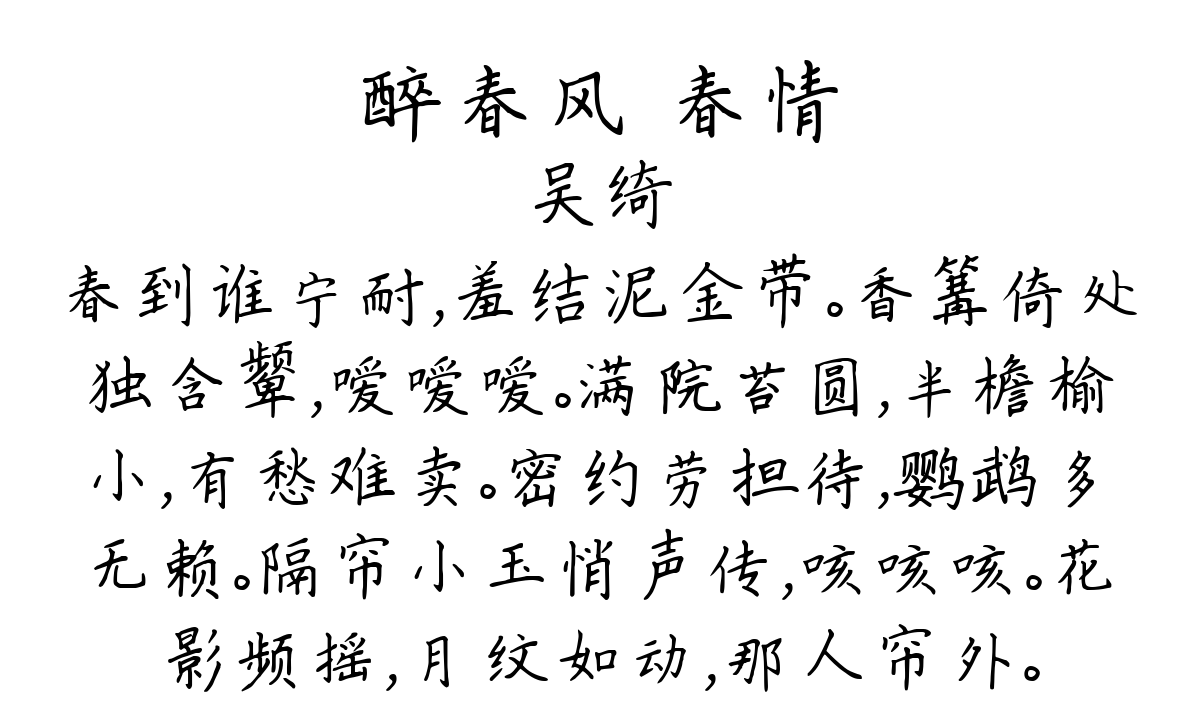 醉春风 春情
吴绮
春到谁宁耐,羞结泥金带。香篝倚处
独含颦,嗳嗳嗳。满院苔圆,半檐榆
小,有愁难卖。密约劳担待,鹦鹉多
无赖。隔帘小玉悄声传,咳咳咳。花
影频摇,月纹如动,那人帘外。